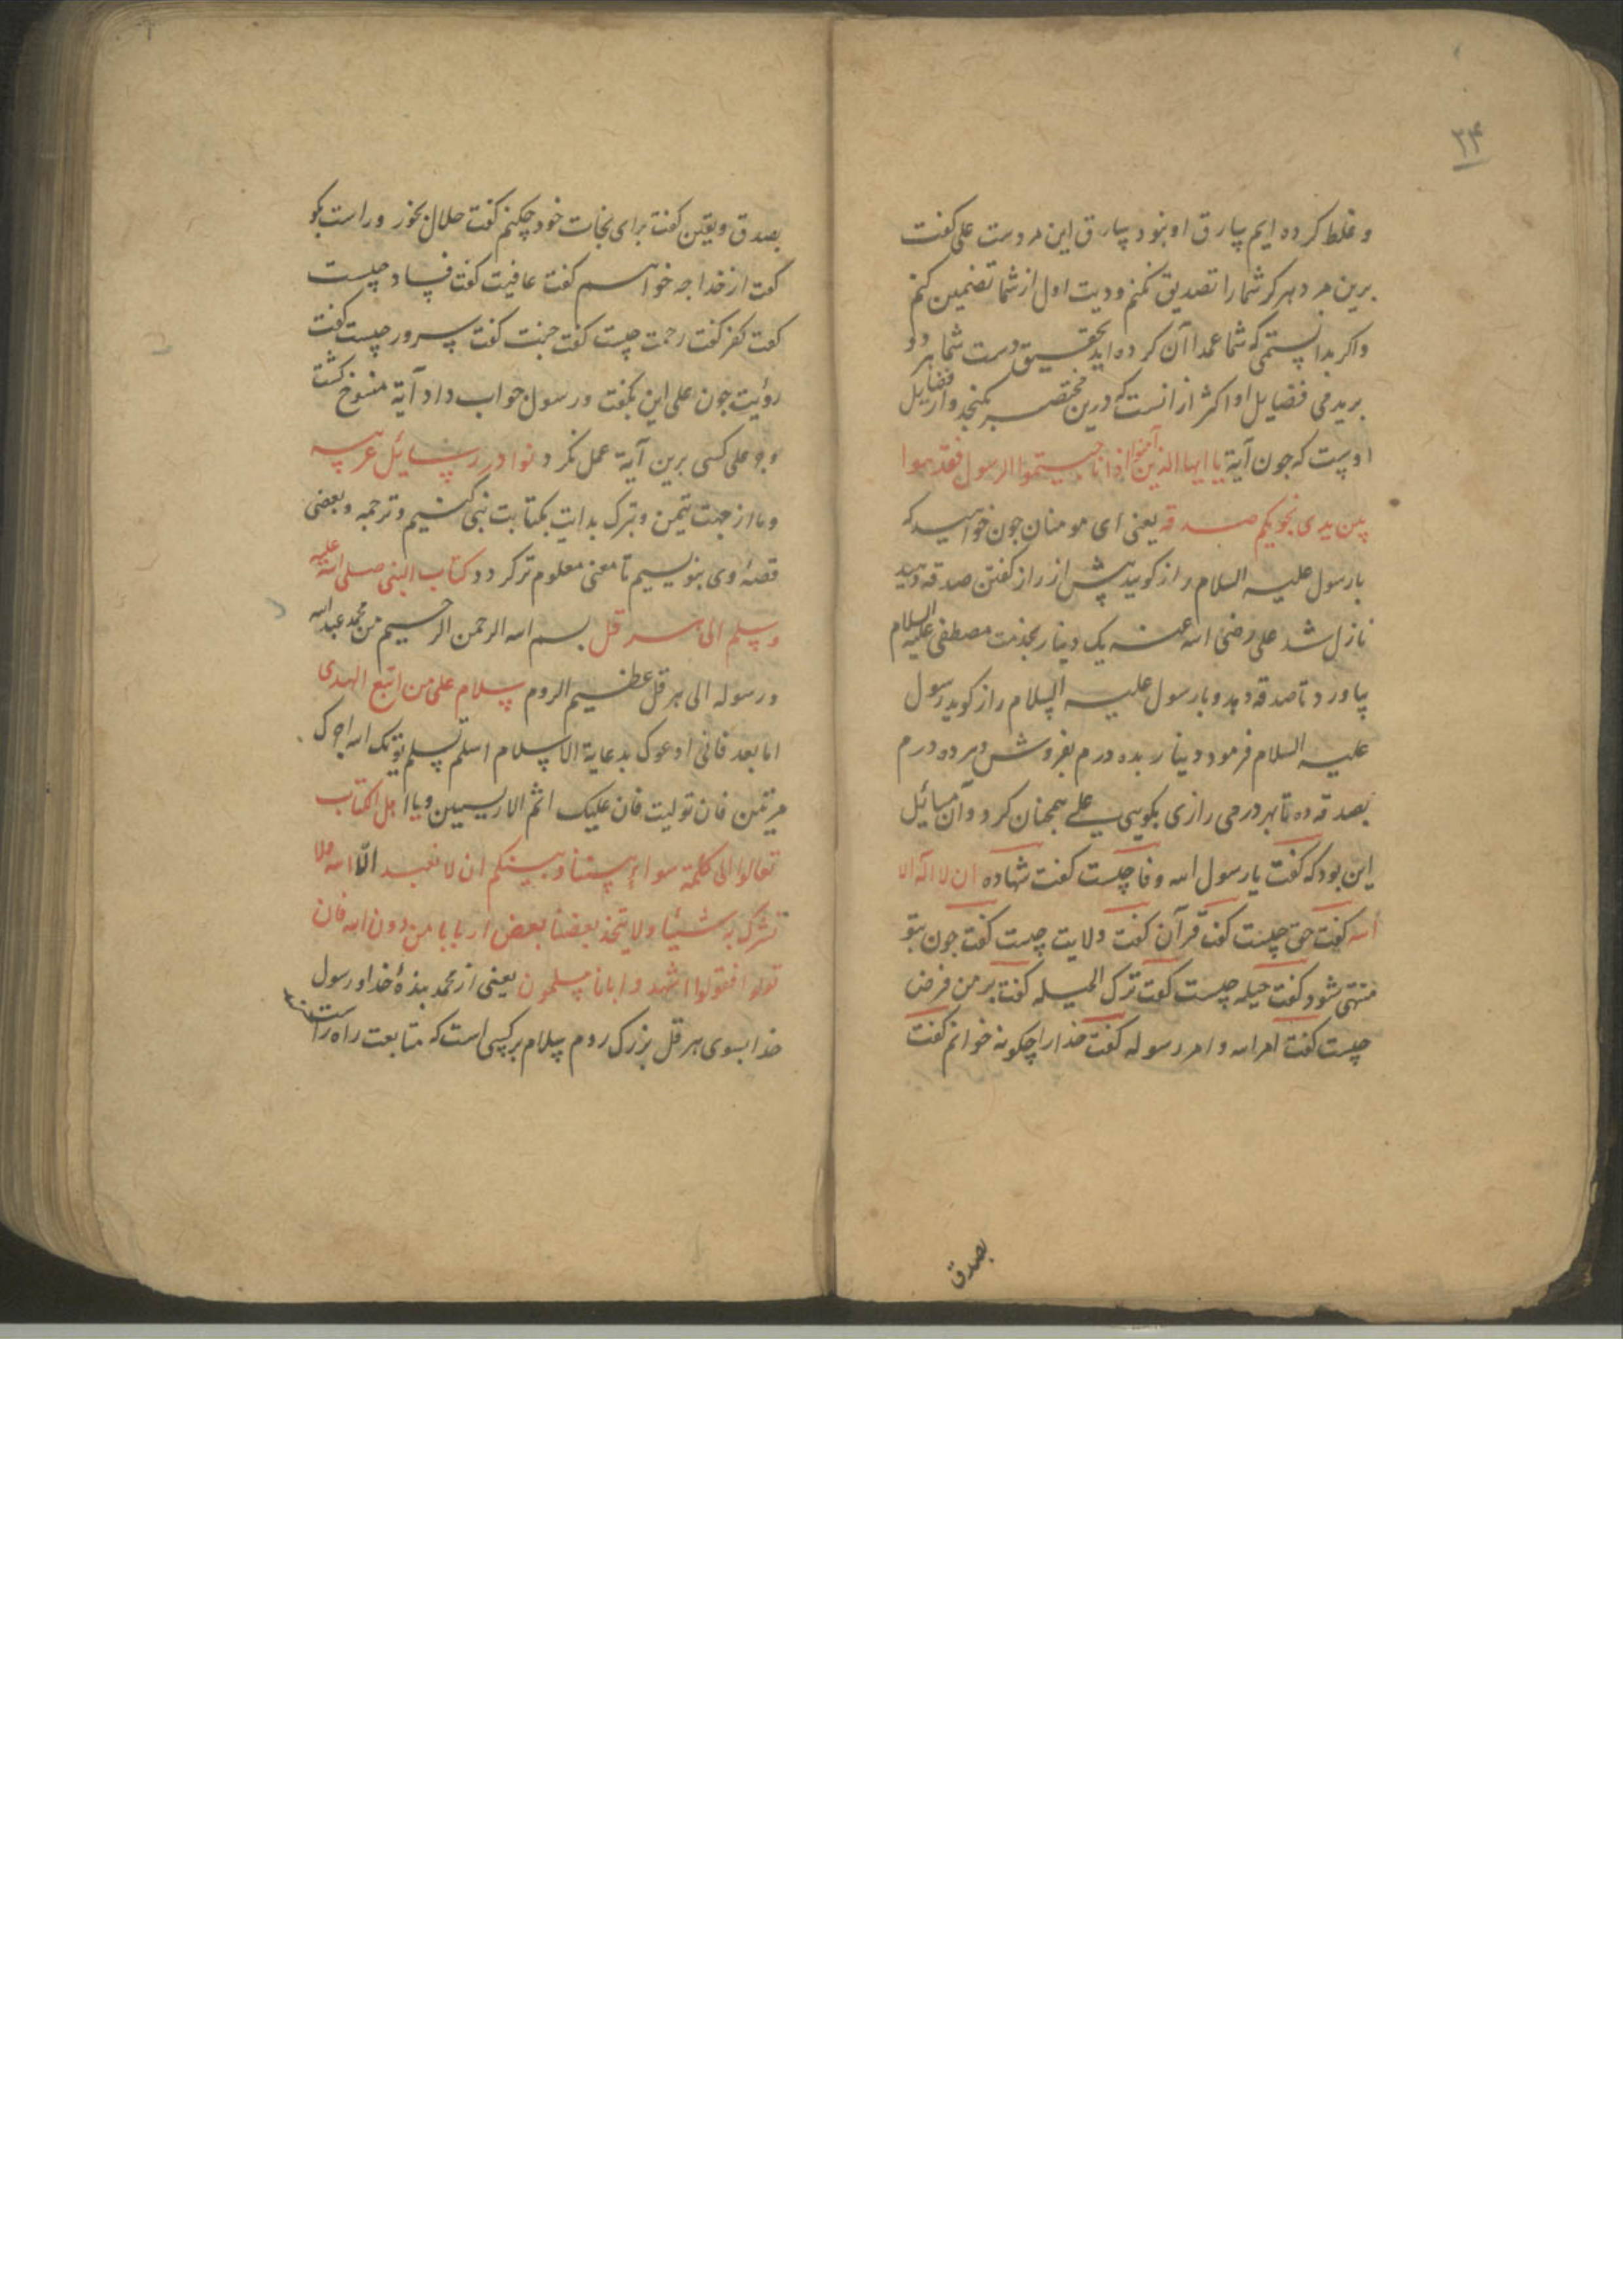 ۳۴
و غلط کرده ایم سارق او نبود سارق این مردست علی کفت
برین مرد هرکز شما را تصدیق نکنم و دیت اول از شما تضمین کنم
و اکر بدانستمی که شما عمدا آن کرده اید بتحقیق دست شما هر دو
بریدمی فضایل او اکثر از انست که درین مختصر بکنجد و از فضایل
اوست که چون آیة یا ایها الذین آمنوا اذا ناجیتموا الرسول فقدموا
بین یدی نجویکم صدقه یعنی ای مومنان چون خواهید که
با رسول علیه السلام راز کویید پیش از راز کفتن صدقه دهید
نازل شد علی رضی الله عنه یک دینار بخدمت مصطفی علیه السلام
بیاورد تا صدقه دهد و با رسول علیه السلام راز کوید رسول
علیه السلام فرمود دینار بده درم بفروش و هر ده درم
بصدقه ده تا بهر درمی رازی بکویی علی همچنان کرد و آن مسائل
این بود که کفت یا رسول الله وفا چیست کفت شهاده ان لا اله الا
الله کفت حق چیست کفت قرآن کفت ولایت چیست کفت چون بتو
منتهی شود کفت حیله چیست کفت ترک الحیله کفت بر من فرض
چیست کفت امر الله و امر رسوله کفت خدا را چکونه خوانم کفت
بصدق
بصدق و یقین کفت برای نجات خود چکنم کفت حلال بخور و راست بکو
کفت از خدا چه خواهم کفت عافیت کفت فساد چیست
کفت کفر کفت رحمت چیست کفت جنت کفت سرور چیست کفت
رؤیت چون علی این بکفت و رسول جواب داد آیة منسوخ کشت
و جز علی کسی برین آیة عمل نکرد نوادر رسائل عربیه
و ما از جهت تیمن و تبرک بدایت بکتابت نبی کنیم و ترجمه و بعضی
قصهٔ وی بنویسیم تا معنی معلوم تر کردد کتاب النبی صلی الله علیه
و سلم الی هرقل بسم الله الرحمن الرحیم من محمد عبد الله
و رسوله الی هرقل عظیم الروم سلام علی من اتبع الهدی
اما بعد فانی ادعوک بدعایة الاسلام اسلم تسلم یؤتک الله اجرک
مرتین فان تولیت فان علیک اثم الاریسیین و یا اهل الکتاب
تعالوا الی کلمة سواء بیننا و بینکم ان لا نعبد الّا الله ولا
نشرک به شیئا و لا یتخذ بعضنا بعض اربابا من دون الله فان
تولوا فقولوا اشهدوا بانا مسلمون یعنی از محمد بندهٔ خدا و رسول
خدا بسوی هرقل بزرک روم سلام بر کسی است که متابعت راه راست